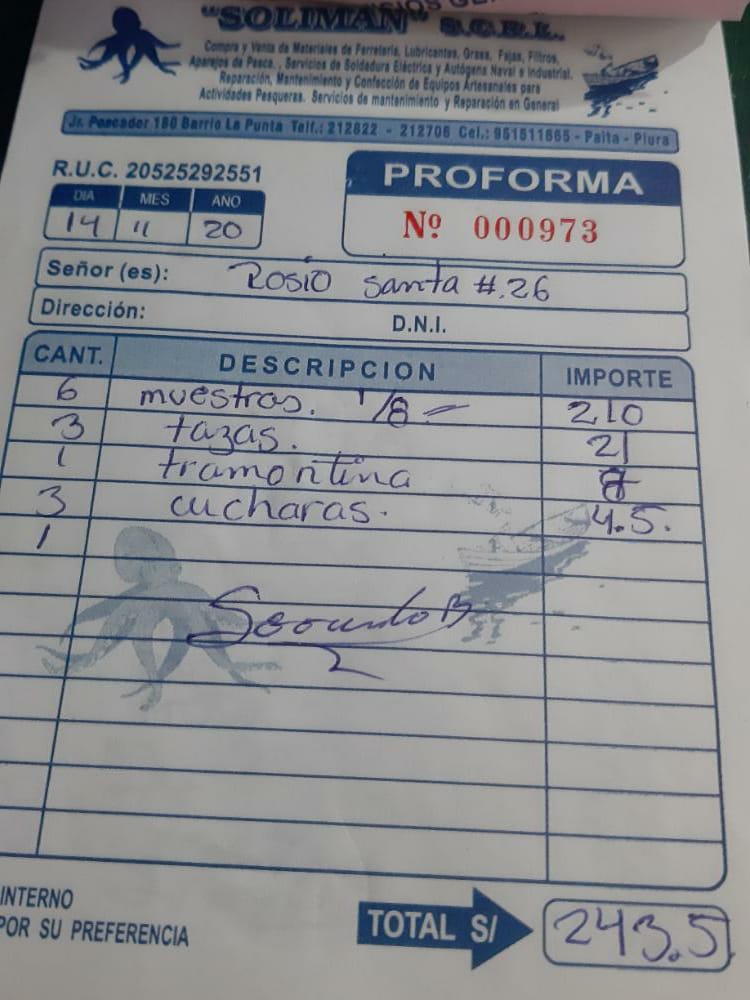 "SOLIMAN" S.C.R.L.
Compra y Venta de Materiales de Ferretería, Lubricantes, Grasa, Fajas, Filtros,
Aparejos de Pesca. , Servicios de Soldadura Eléctrica y Autógena Naval e Industrial.
Reparación, Mantenimiento y Confección de Equipos Artesanales para
Actividades Pesqueras. Servicios de mantenimiento y Reparación en General
Jr. Pescador 180 Barrio La Punta Telf.: 212622 - 212706 Cel.: 951511665 - Paita - Piura
R.U.C. 20525292551
PROFORMA
DIA MES AÑO
14 11 20
Nº 000973
Señor (es): Rosio Santa #.26
Dirección: D.N.I.
CANT. DESCRIPCION IMPORTE
6 muestras. 1/8 — 210
3 tazas. 21
1 tramontina 8
3 cucharas. 4.5.
1
INTERNO
POR SU PREFERENCIA
TOTAL S/ 243.5